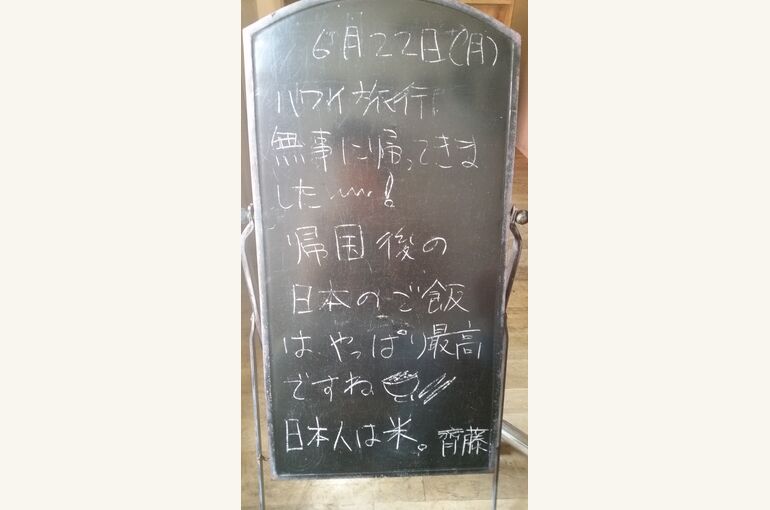 6月22日(月)
ハワイ旅行
無事に帰ってきま
した〰!
帰国後の
日本のご飯
は やっぱり最高
ですね
日本人は米。齊藤